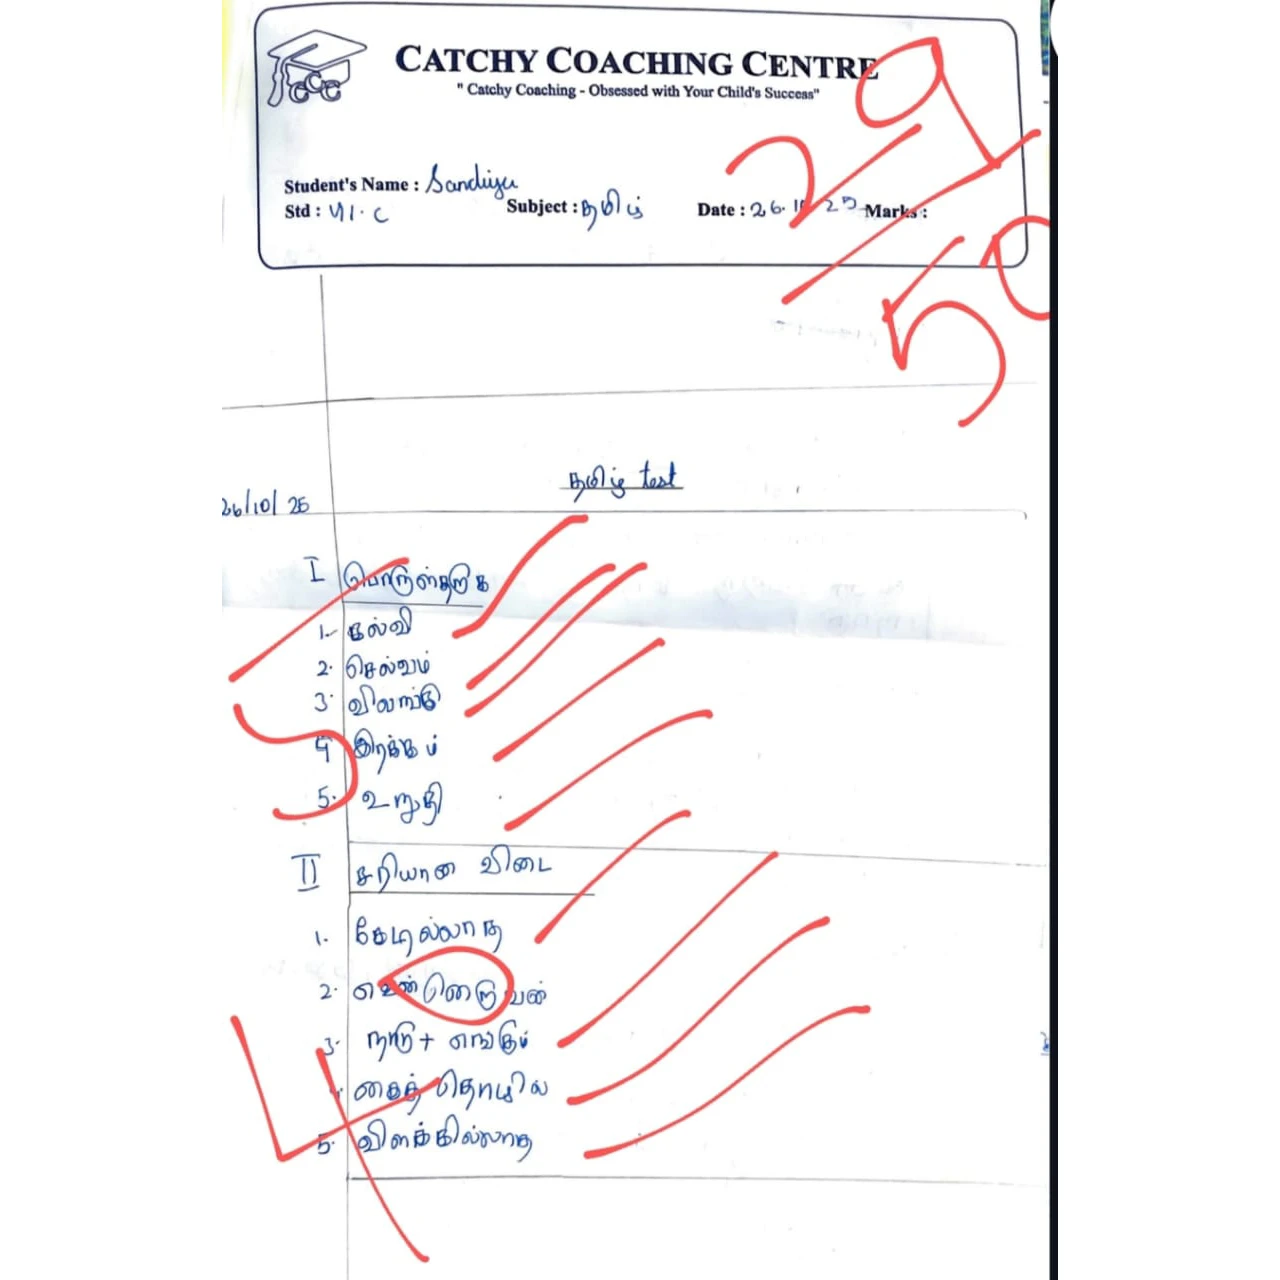 CATCHY COACHING CENTRE
" Catchy Coaching - Obsessed with Your Child's Success"
CCC
29
50
Student's Name : Sandiya
Std : VI. C Subject : தமிழ் Date : 26. 10 25 Marks :
தமிழ் test
26/10/25
I பொருள்தருக
1. கல்வி
2. செல்வம்
3. விலங்கு
4 இரக்கம்
5. உறுதி
5
II சரியான விடை
1. கேடில்லாத
2.
3. நாடு + எங்கும்
4. கைத் தொழில்
5. விளக்கில்லாத
4